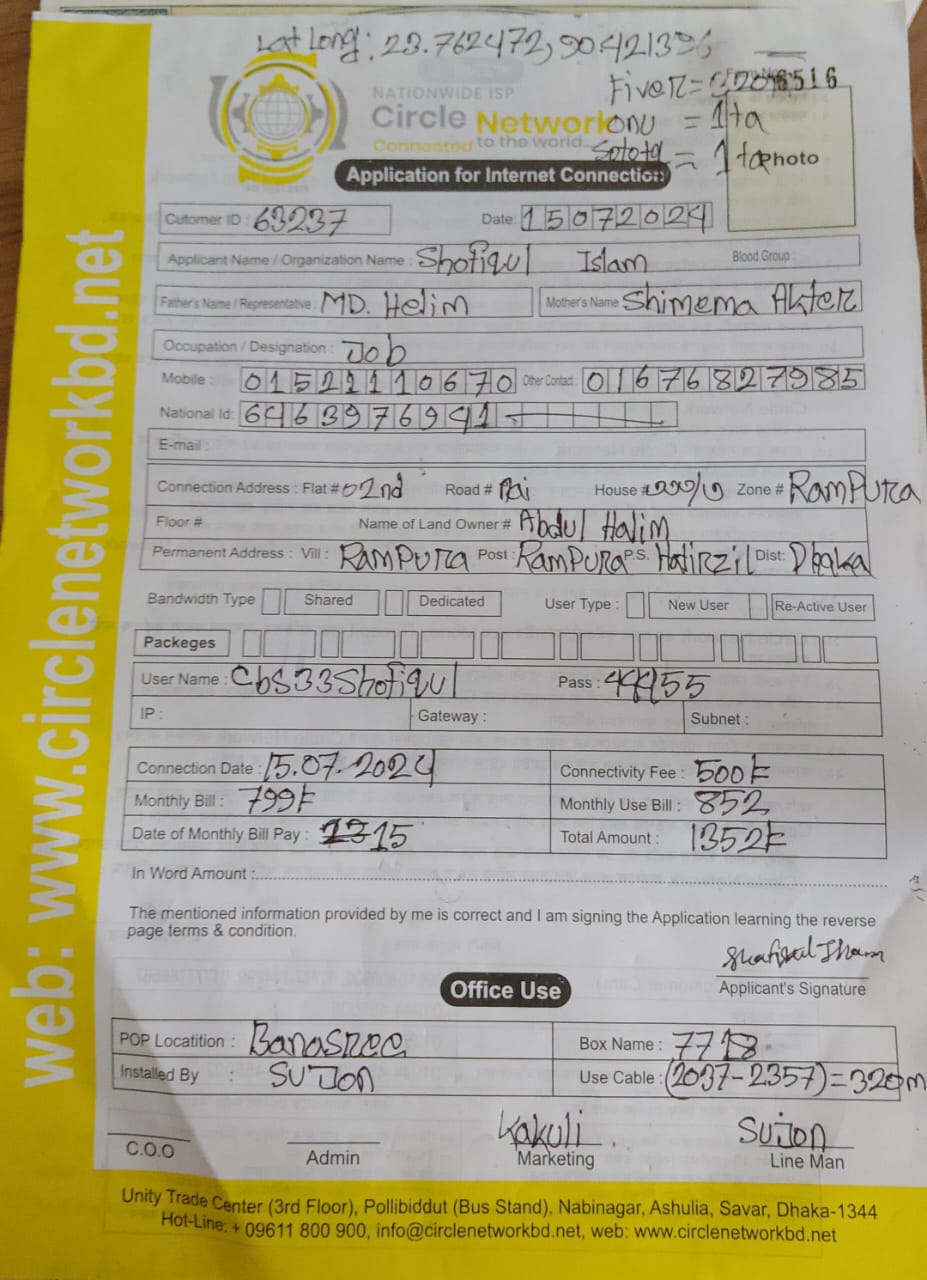 Lat Long: 23.762472, 90.421396
NATIONWIDE ISP
Circle Network
Connected to the world...
Fiver = 516
onu = 1ta
= 1ta
Photo
Application for Internet Connection
Cutomer ID : 63237 Date: 15072024
Applicant Name / Organization Name : Shofiqul Islam Blood Group :
Father's Name / Representative : MD. Helim Mother's Name Shimema Akter
Occupation / Designation : Job
Mobile : 01521110670 Other Contact : 01676827985
National Id: 6463976941
E-mail :
Connection Address : Flat # 02nd Road # House # Zone # RamPura
Floor # Name of Land Owner # Abdul Halim
Permanent Address : Vill : RamPura Post : RamPura P.S. Hatirzil Dist: Dhaka
Bandwidth Type Shared Dedicated User Type : New User Re-Active User
Packeges
User Name : Cbs33Shofiqul Pass : 44455
IP : Gateway : Subnet :
Connection Date : 15.07.2024 Connectivity Fee : 500৳
Monthly Bill : 799৳ Monthly Use Bill : 852
Date of Monthly Bill Pay : 15 Total Amount : 1352৳
In Word Amount :
The mentioned information provided by me is correct and I am signing the Application learning the reverse
page terms & condition.
Shafiqul Islam
Applicant's Signature
Office Use
POP Locatition : Banasree Box Name : 7718
Installed By : SuJon Use Cable : (2037-2357)=320m
Kakuli SuJon
C.O.O Admin Marketing Line Man
Unity Trade Center (3rd Floor), Pollibiddut (Bus Stand), Nabinagar, Ashulia, Savar, Dhaka-1344
Hot-Line: + 09611 800 900, info@circlenetworkbd.net, web: www.circlenetworkbd.net
web: www.circlenetworkbd.net